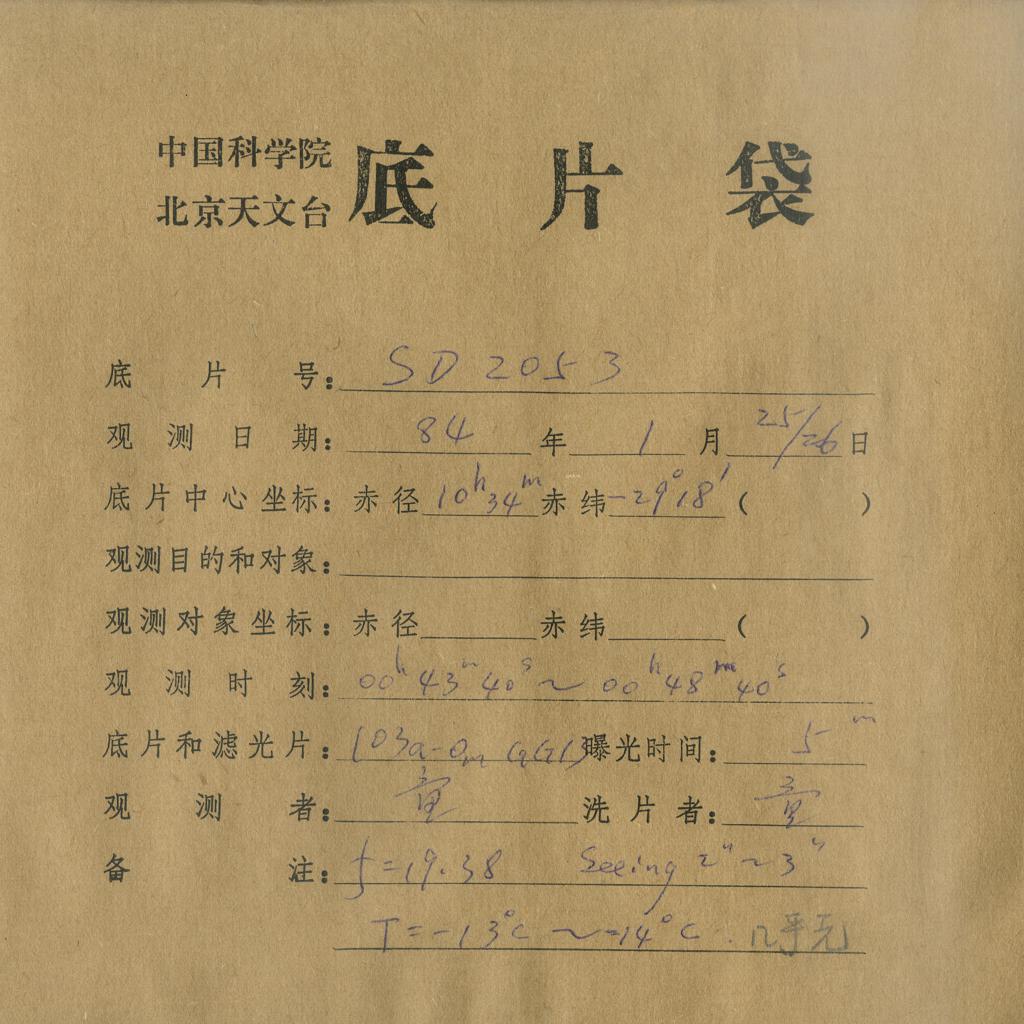 中国科学院
北京天文台 底片袋
底片号: SD 2053
观测日期: 84 年 1 月 25/26 日
底片中心坐标: 赤径 10h 34m 赤纬 -29°18′ ( )
观测目的和对象:
观测对象坐标: 赤径 赤纬 ( )
观测时刻: 00h 43m 40s ~ 00h 48m 40s
底片和滤光片: 103a-O GG13 曝光时间: 5m
观测者: 童 洗片者: 童
备注: f=19.38 Seeing 2″~3″
T=-13°C ~ -14°C. 几乎无